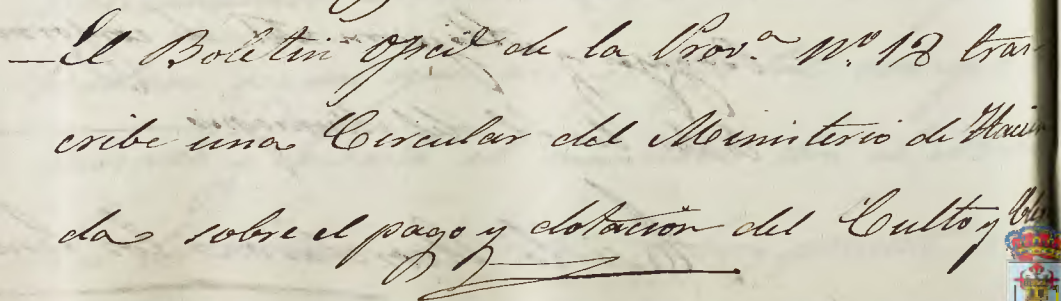 —El Boletin Ofic.l de la Prov.a N.o 18 tras
cribe una Circular del Ministerio de Hacien
da sobre el pago y dotacion del Culto y